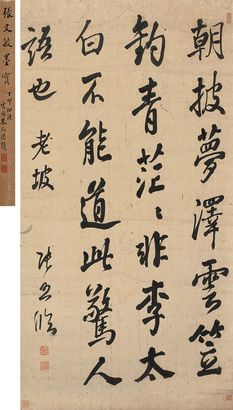 朝披夢澤雲笠
釣青茫〻非李太
白不能道此驚人
語也 老坡
張照臨
張文敏墨寶